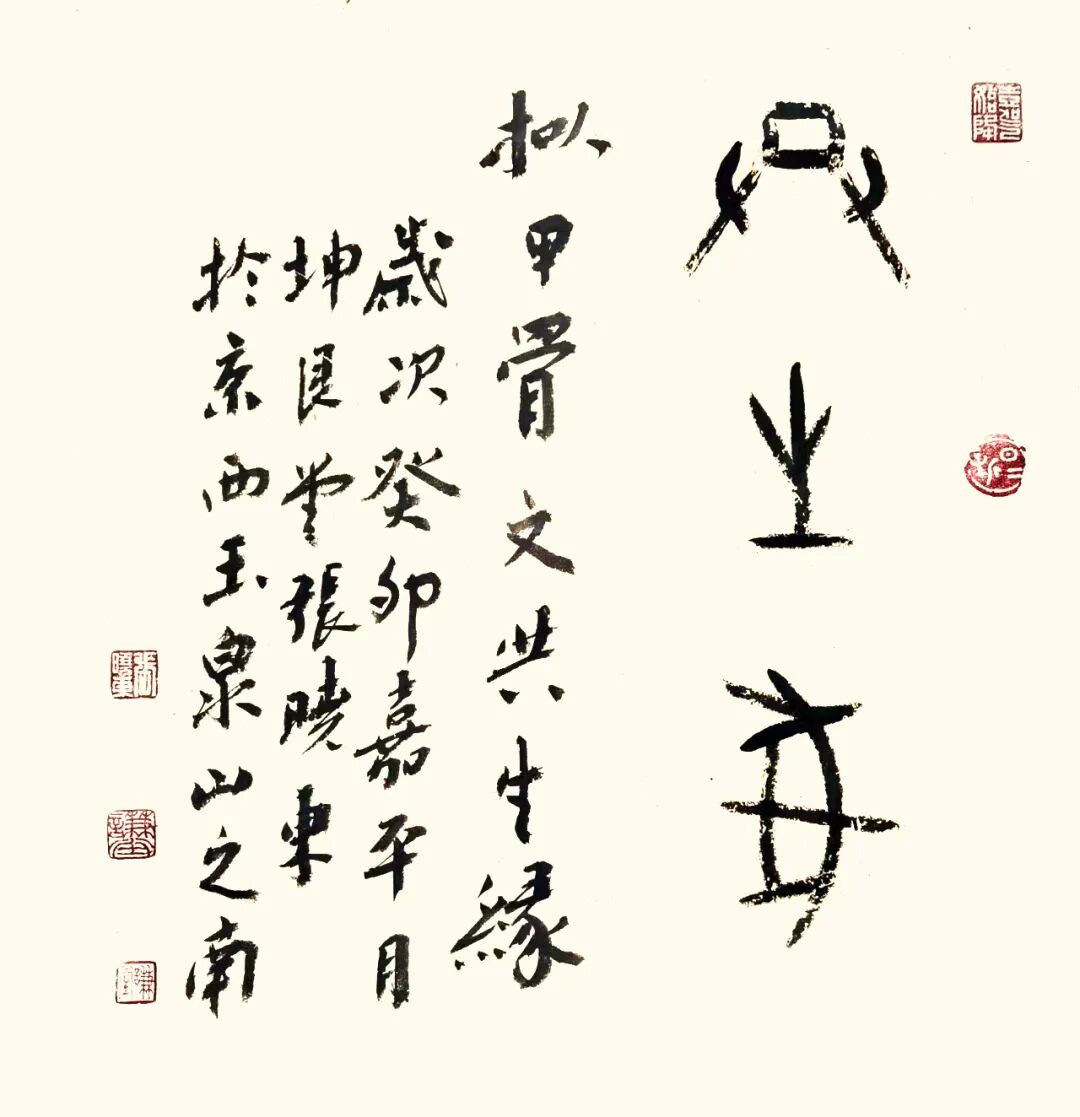 共生緣
拟甲骨文共生緣
歲次癸卯嘉平月
坤艮堂張曉東
於京西玉泉山之南